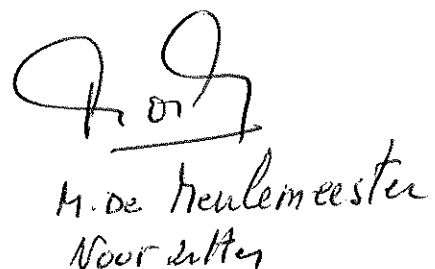 M. De Meulemeester
Voorzitter